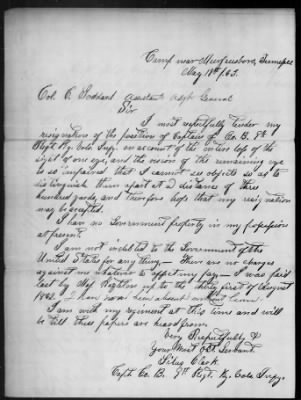 Camp near Murfreesboro, Tennessee
May 18th /63.
Col. C. Goddard Assistant Adjt General
Sir
I most respectfully tender my
resignation of the position of Captain of Co. B. 9th
Regt Ky. Vols Inf. on account of the entire loss of the
sight of one eye, and the vision of the remaining eye
is so impaired that I cannot see objects so as to
distinguish them apart at a distance of three
hundred yards, and therefore hope that my resignation
may be accepted.
I have no Government property in my possession
at present.
I am not indebted to the Government of the
United States for any thing — There are no charges
against me whatever to affect my pay — I was paid
last by Maj to the thirty first of August
1862. I have never been absent without leave.
I am with my regiment at this time and will
be till these papers are heard from.
Very Respectfully &
Your Most Obt Servant.
Silas Clark
Capt. Co. B. 9th Regt. Ky. Vols Infy.